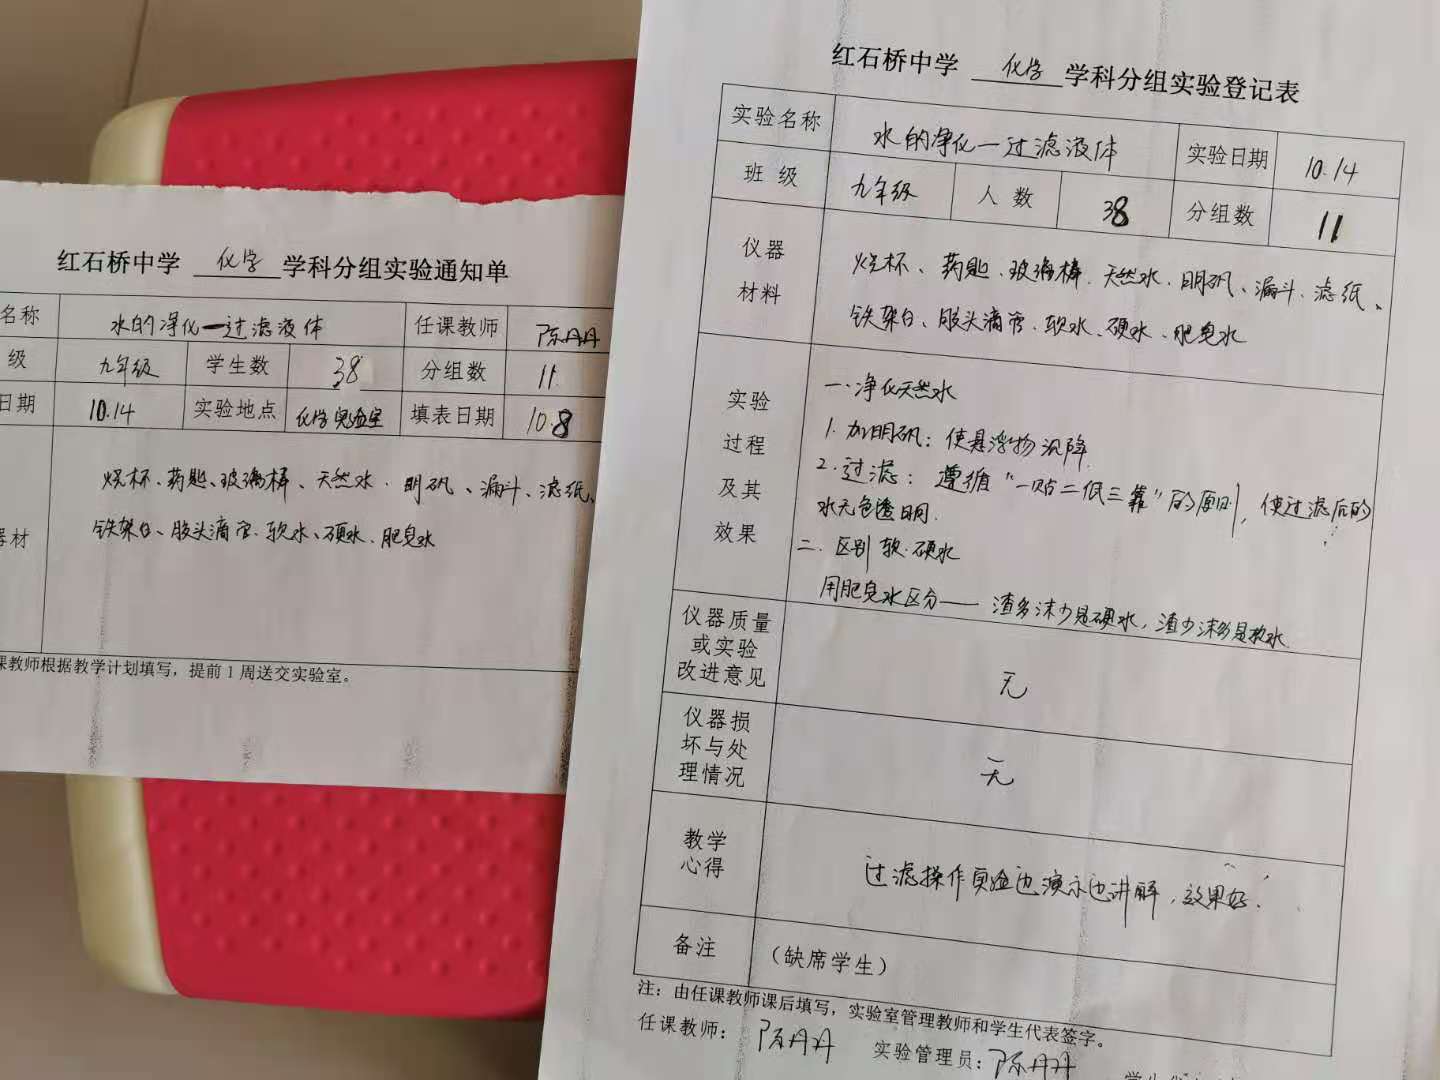 红石桥中学 化学 学科分组实验通知单
名称 水的净化—过滤液体 任课教师 陈丹丹
级 九年级 学生数 38 分组数 11
日期 10.14 实验地点 化学实验室 填表日期 10.8
器材 烧杯、药匙、玻璃棒、天然水、明矾、漏斗、滤纸、
铁架台、胶头滴管、软水、硬水、肥皂水
课教师根据教学计划填写，提前1周送交实验室。
红石桥中学 化学 学科分组实验登记表
实验名称 水的净化—过滤液体 实验日期 10.14
班级 九年级 人数 38 分组数 11
仪器材料 烧杯、药匙、玻璃棒、天然水、明矾、漏斗、滤纸、
铁架台、胶头滴管、软水、硬水、肥皂水
实验过程及其效果
一、净化天然水
1. 加明矾：使悬浮物沉降.
2. 过滤：遵循“一贴二低三靠”的原则，使过滤后的
水无色透明.
二. 区别软.硬水
用肥皂水区分—— 渣多沫少是硬水，渣少沫多是软水
仪器质量或实验改进意见 无
仪器损坏与处理情况 无
教学心得 过滤操作实验边演示边讲解，效果好.
备注 （缺席学生）
注：由任课教师课后填写，实验室管理教师和学生代表签字。
任课教师：陈丹丹 实验管理员：陈丹丹